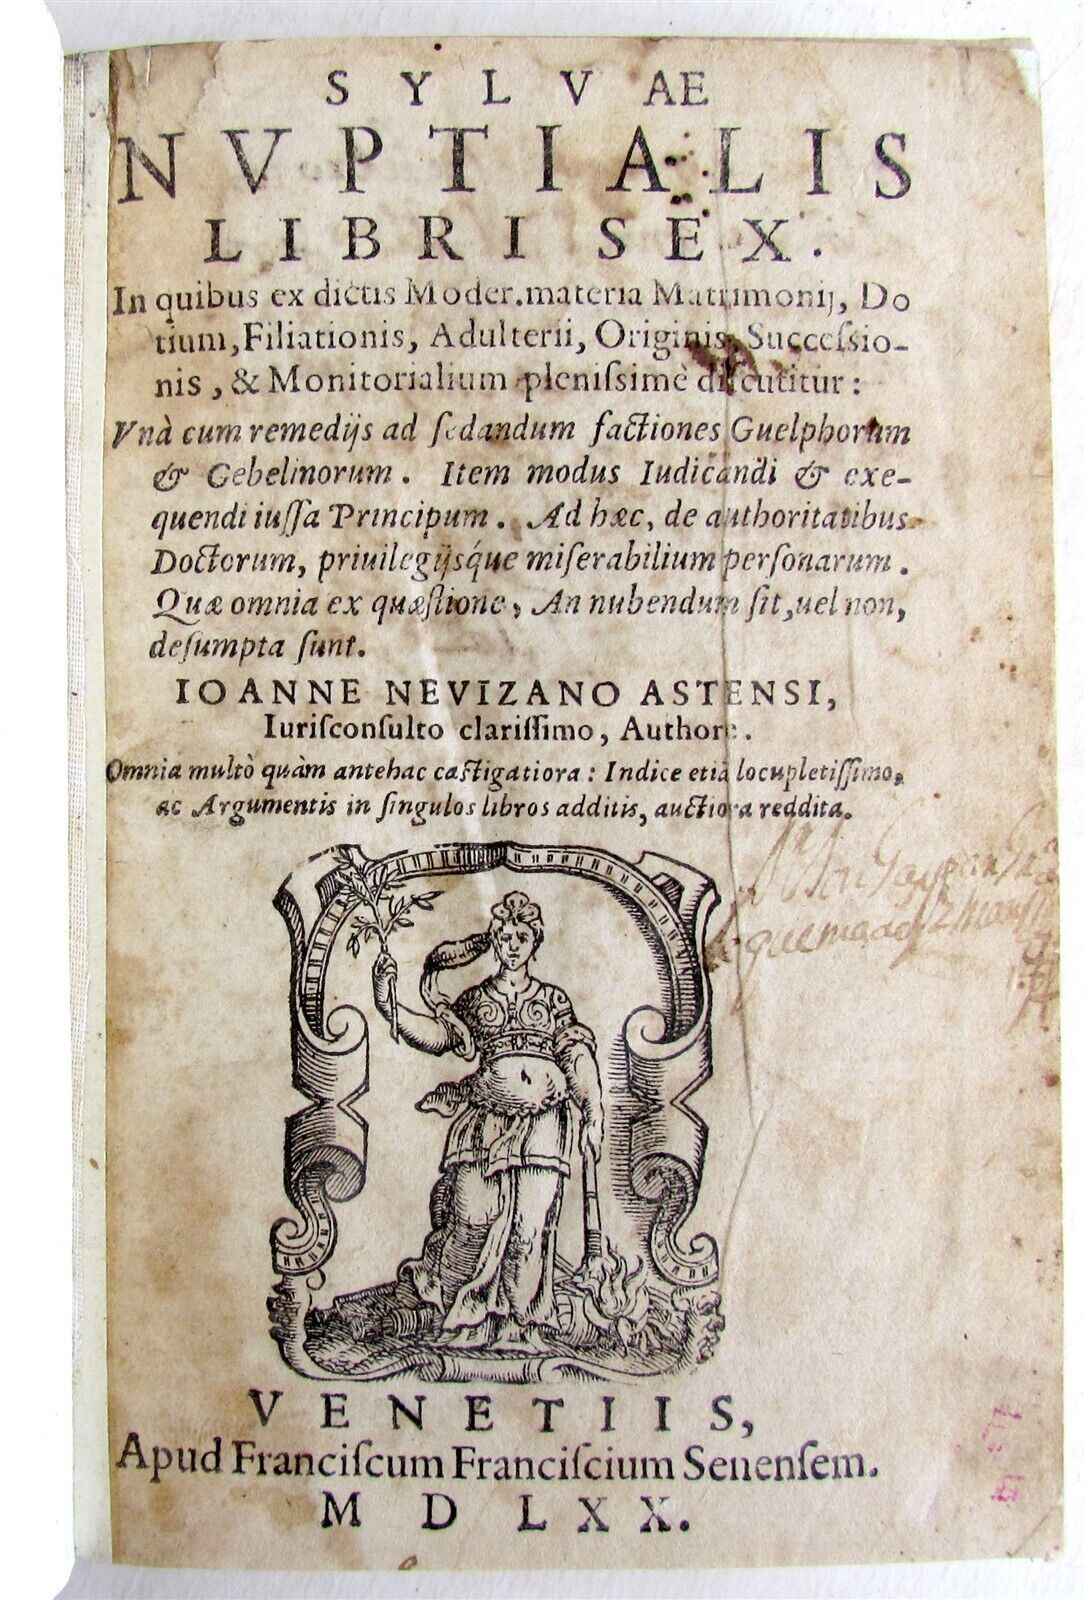 SYLVAE
NVPTIALIS
LIBRI SEX.
In quibus ex dictis Moder.materia Matrimonij, Do
tium, Filiationis, Adulterii, Originis, Succeſsio-
nis, & Monitorialium pleniſsimè diſcutitur:
Vnà cum remedijs ad ſedandum factiones Guelphorum
& Gebelinorum. Item modus Iudicandi & exe-
quendi iuſſa Principum. Ad hæc, de authoritatibus
Doctorum, priuilegijsq́ue miſerabilium perſonarum.
Quæ omnia ex quæſtione, An nubendum ſit, uel non,
deſumpta ſunt.
IOANNE NEVIZANO ASTENSI,
Iuriſconſulto clariſſimo, Authore.
Omnia multò quàm antehac caſtigatiora: Indice etiã locupletiſſimo,
ac Argumentis in ſingulos libros additis, auctiora reddita.
VENETIIS,
Apud Franciſcum Franciſcium Senenſem.
MDLXX.